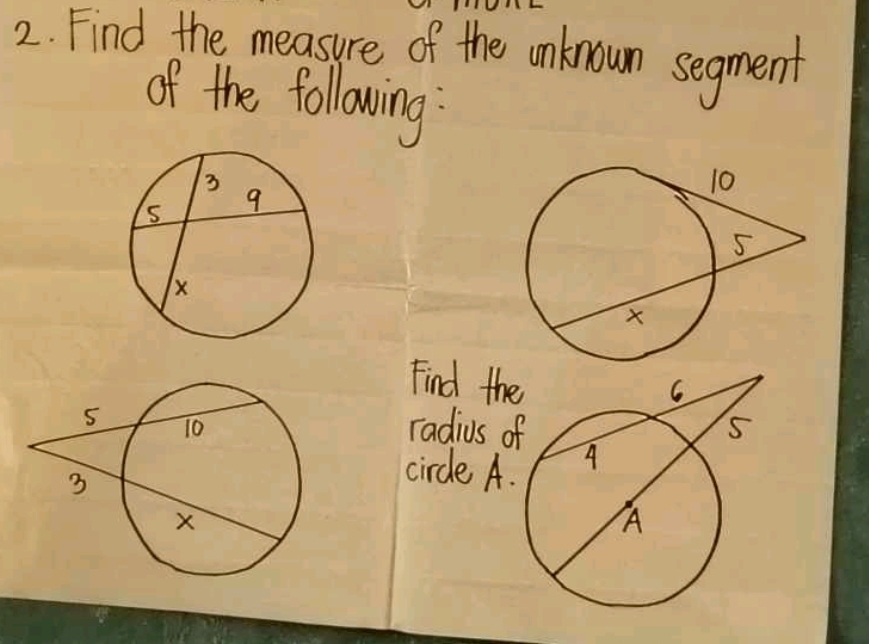 2. Find the measure of the unknown segment
of the following:
3
5
9
x
10
5
x
5
10
3
x
Find the
radius of
circle A.
6
5
4
A